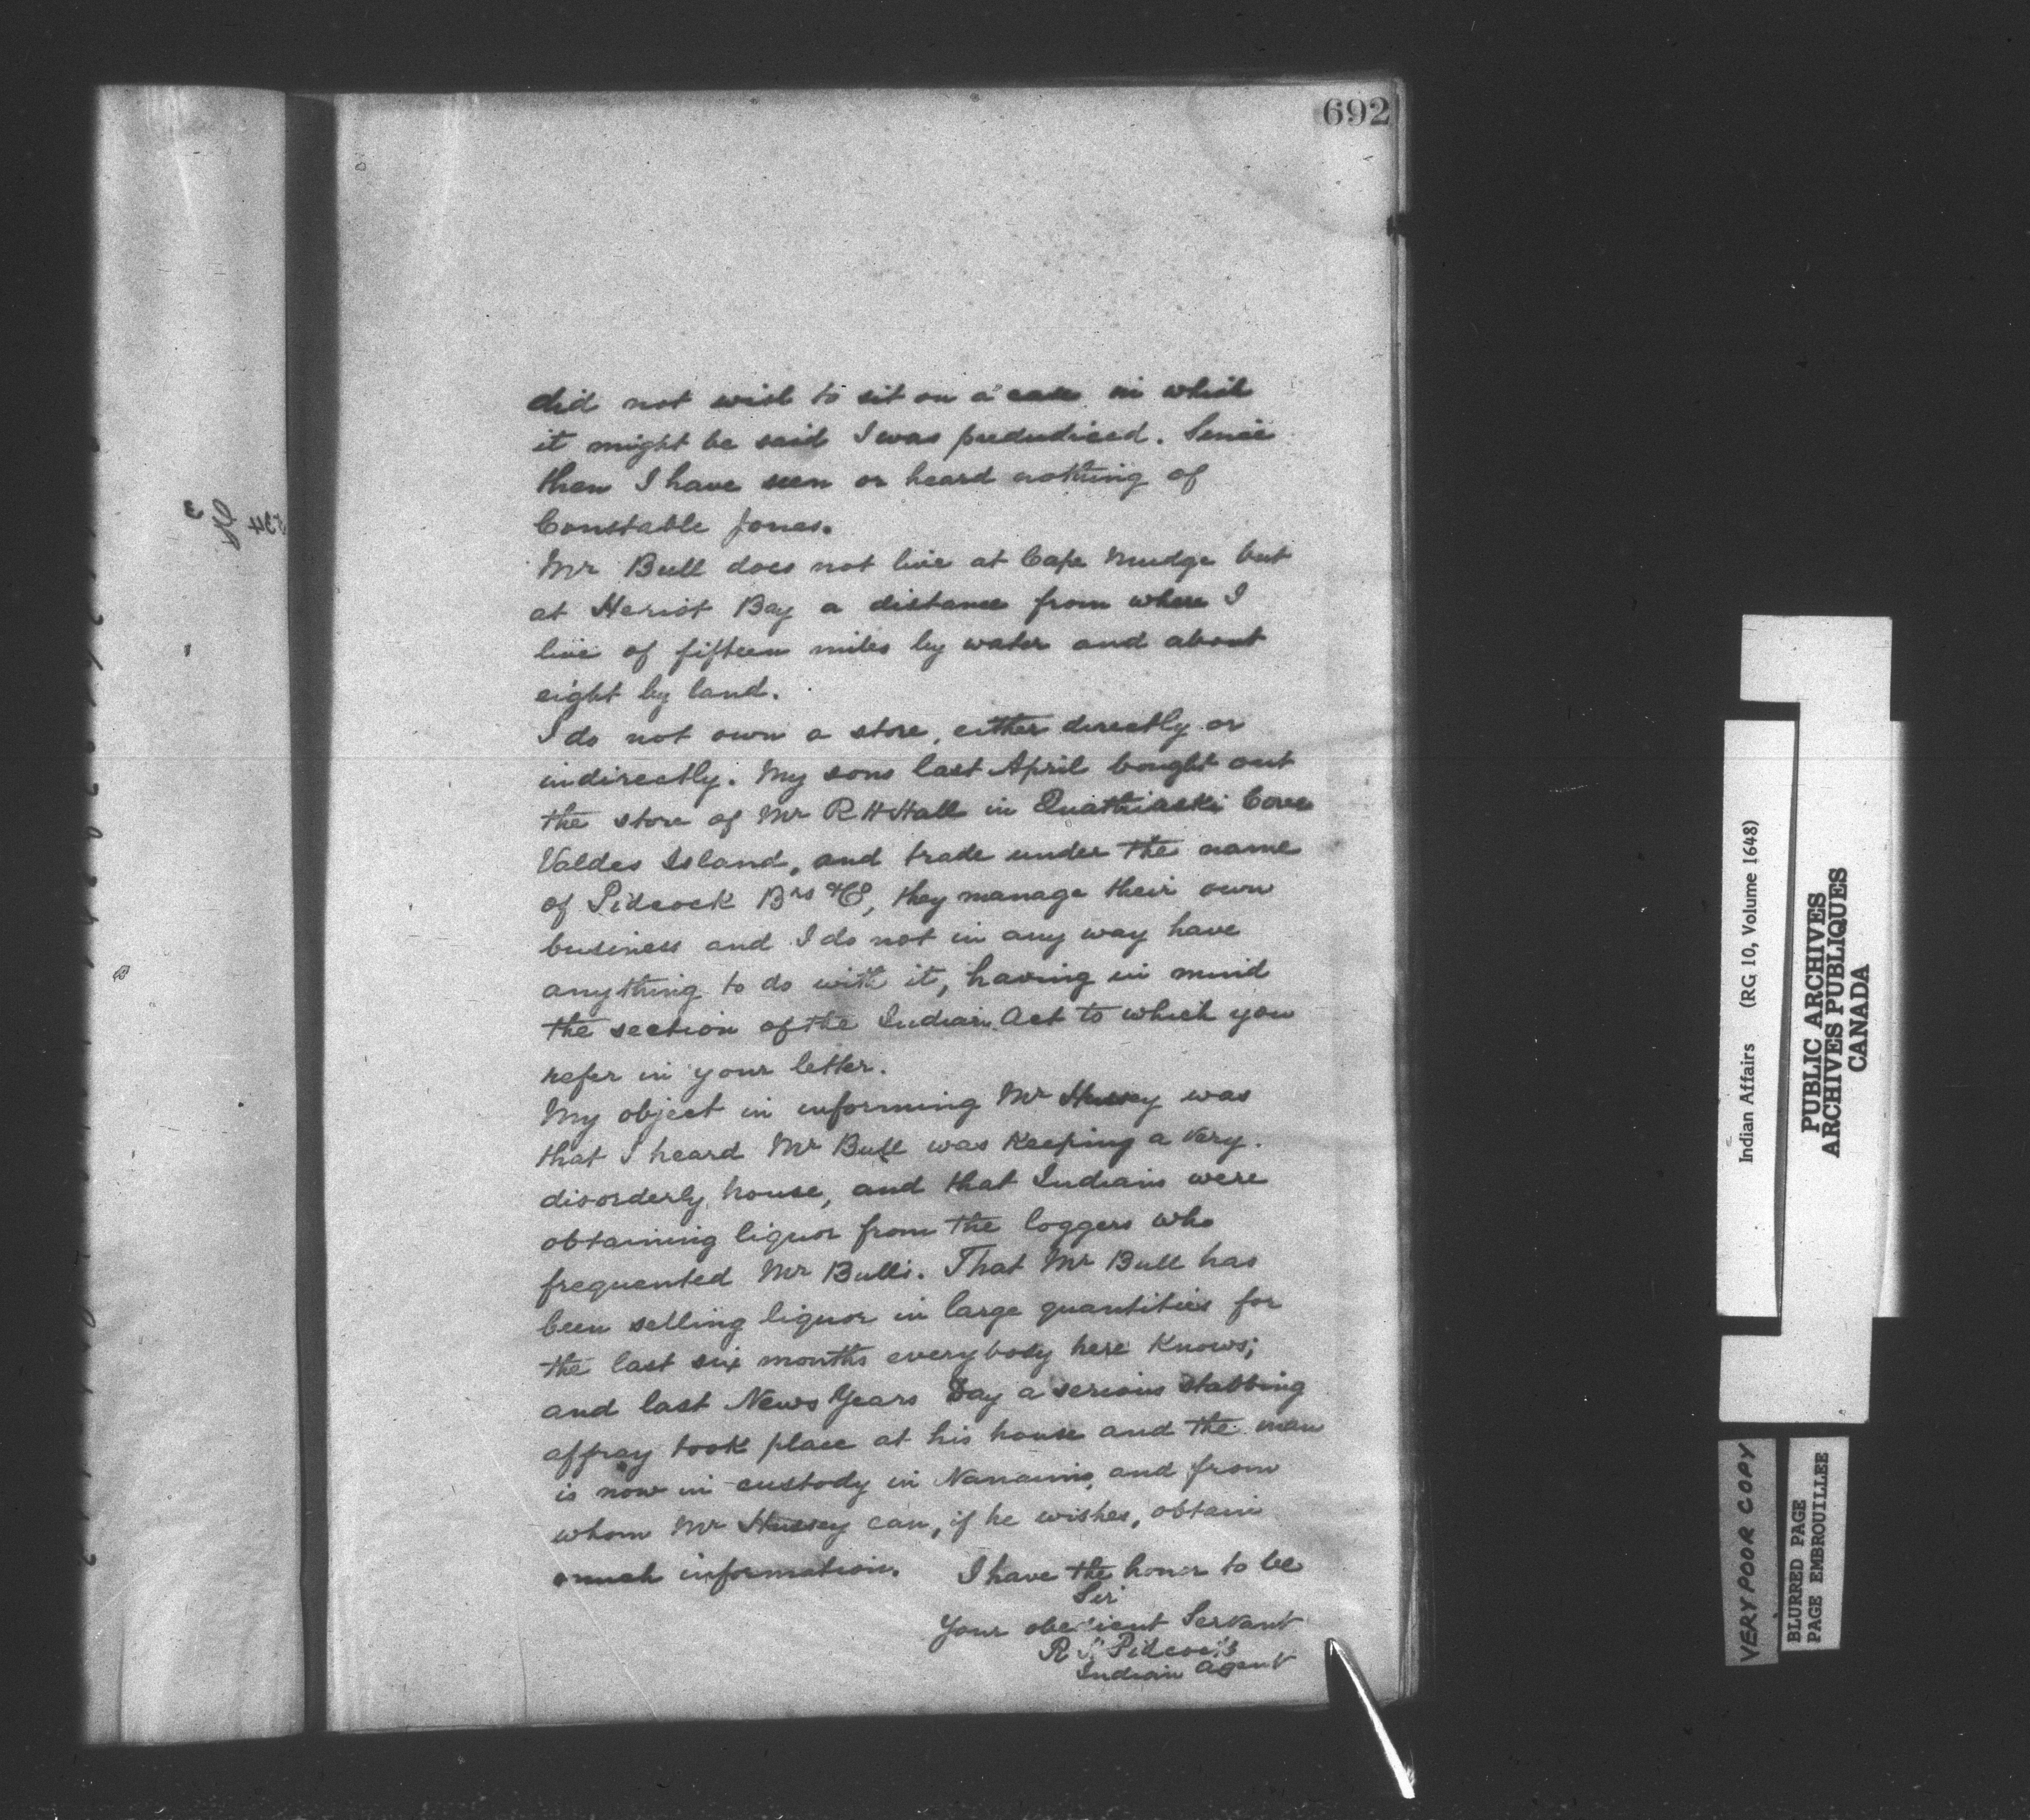 692
did not wish to sit on a case in which
it might be said I was predudiced. Since
then I have seen or heard nothing of
Constable Jones.
Mr Bull does not live at Cape Mudge but
at Heriot Bay a distance from where I
live of fifteen miles by water and about
eight by land.
I do not own a store, either directly or
indirectly. My sons last April bought out
the store of Mr R H Hall in Quathiaski Cove
Valdes Island, and trade under the name
of Pidcock Brs & Co, they manage their own
business and I do not in any way have
anything to do with it, having in mind
the section of the Indian Act to which you
refer in your letter.
My object in informing Mr Hussey was
that I heard Mr Bull was keeping a very
disorderly house, and that Indians were
obtaining liquor from the loggers who
frequented Mr Bulls. That Mr Bull has
been selling liquor in large quantities for
the last six months everybody here knows;
and last News Years Day a serious stabbing
affray took place at his house and the man
is now in custody in Nanaimo, and from
whom Mr Hussey can, if he wishes, obtain
much information. I have the honor to be
Sir
Your obedient Servant
R H Pidcock
Indian Agent
Indian Affairs (RG 10, Volume 1648)
PUBLIC ARCHIVES
ARCHIVES PUBLIQUES
CANADA
VERY POOR COPY
BLURRED PAGE
PAGE EMBROUILLEE